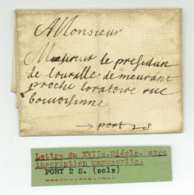 A Monsieur
Monsieur le presidan
de tourelle de meurant
proche loratoire rue
port 2 s
Lettre du XVIIe. Siècle. avec
inscription manuscrite.
PORT 2 S. (sols)